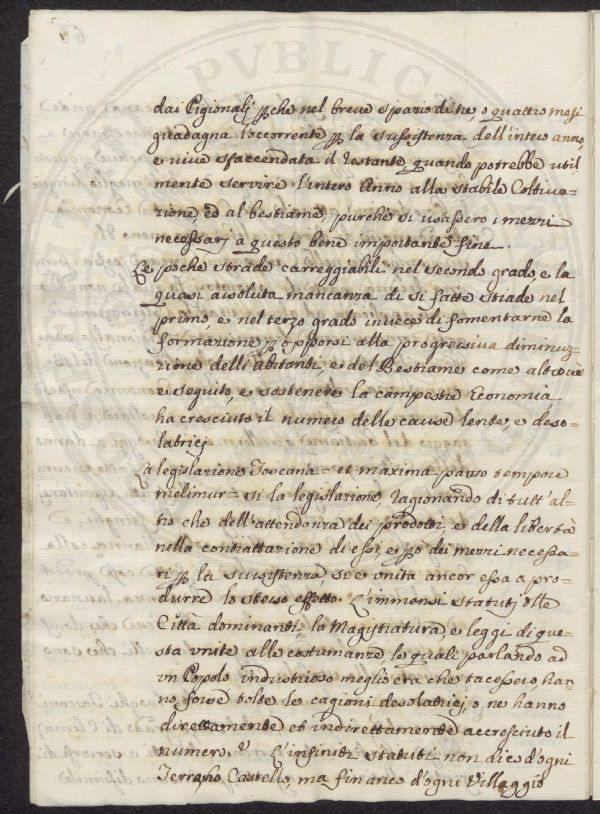 dai Pigionalj p che nel breve spazio di tre, o quattro mesi
guadagna l'occorrente p la sussistenza dell'intero anno,
e vive sfaccendata il restante quando potrebbe util-
mente servire l'intero Anno alla stabile Coltiva-
zione ed al bestiame, purchè si usassero i mezzi
necessarj a questo bene importante fine.
Le poche strade carreggiabili nel secondo grado, e la
quasi assoluta mancanza di si fatte strade nel
primo, e nel terzo grado invece di fomentarne la
formazione p opporsi alla progressiva diminuz-
zione delli abitanti, e del Bestiame come altrove
e seguito, e sostenere la campestre Economia,
ha cresciuto il numero delle cause lente, e deso-
latricj.
La legislazione Toscana = et maxima pauso tempore
melimur = si la legislazione ragionando di tutt'al-
tro che dell'attendanza dei prodotti, e della libertà
nella contrattazione di essi, e però dei mezzi necessa-
rj p la sussistenza si è unita ancor essa a pro-
durre lo stesso effetto. L'immensi statuti delle
Città dominanti, la Magistratura, e leggi di que-
sta unite alle costumanze, le quali parlando ad
un Popolo industrioso meglio era che tacessero, han-
no forse tolte le cagioni desolatricj, o ne hanno
direttamente et indirettamente accresciuto il
numero. L'infiniti statuti non dico d'ogni
Castello, ma financo d'ogni Villaggio
PVBLIC